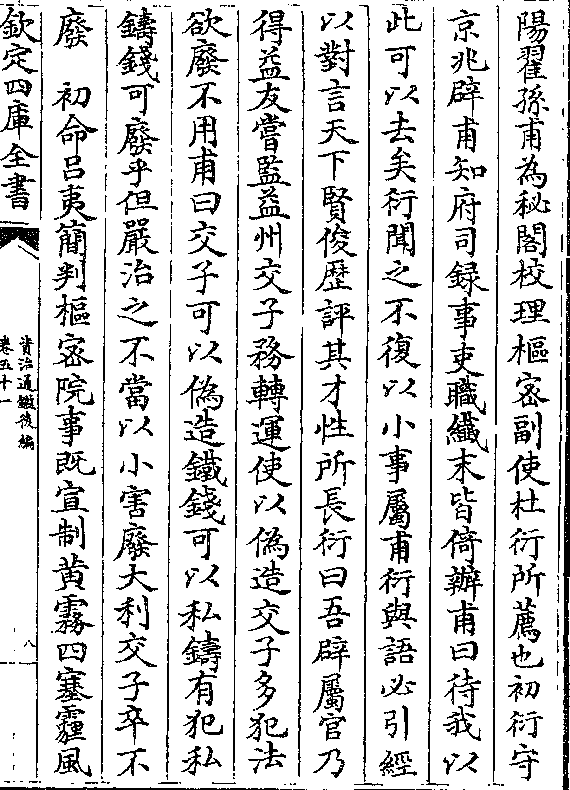 陽翟孫甫為秘閣校理樞宻副使杜衍所薦也初衍守
京兆辟甫知府司録事吏職纎末皆倚辦甫曰待我以
此可以去矣衍聞之不復以小事屬甫衍與語必引經
以對言天下賢俊歴評其才性所長衍曰吾辟屬官乃
得益友嘗監益州交子務轉運使以偽造交子多犯法
欲廢不用甫曰交子可以偽造鐵錢可以私鑄有犯私
鑄錢可廢乎但嚴治之不當以小害廢大利交子卒不
廢　初命吕夷簡判樞宻院事既宣制黄霧四塞霾風
欽定四庫全書
資治通鑑後編
卷五十一
八